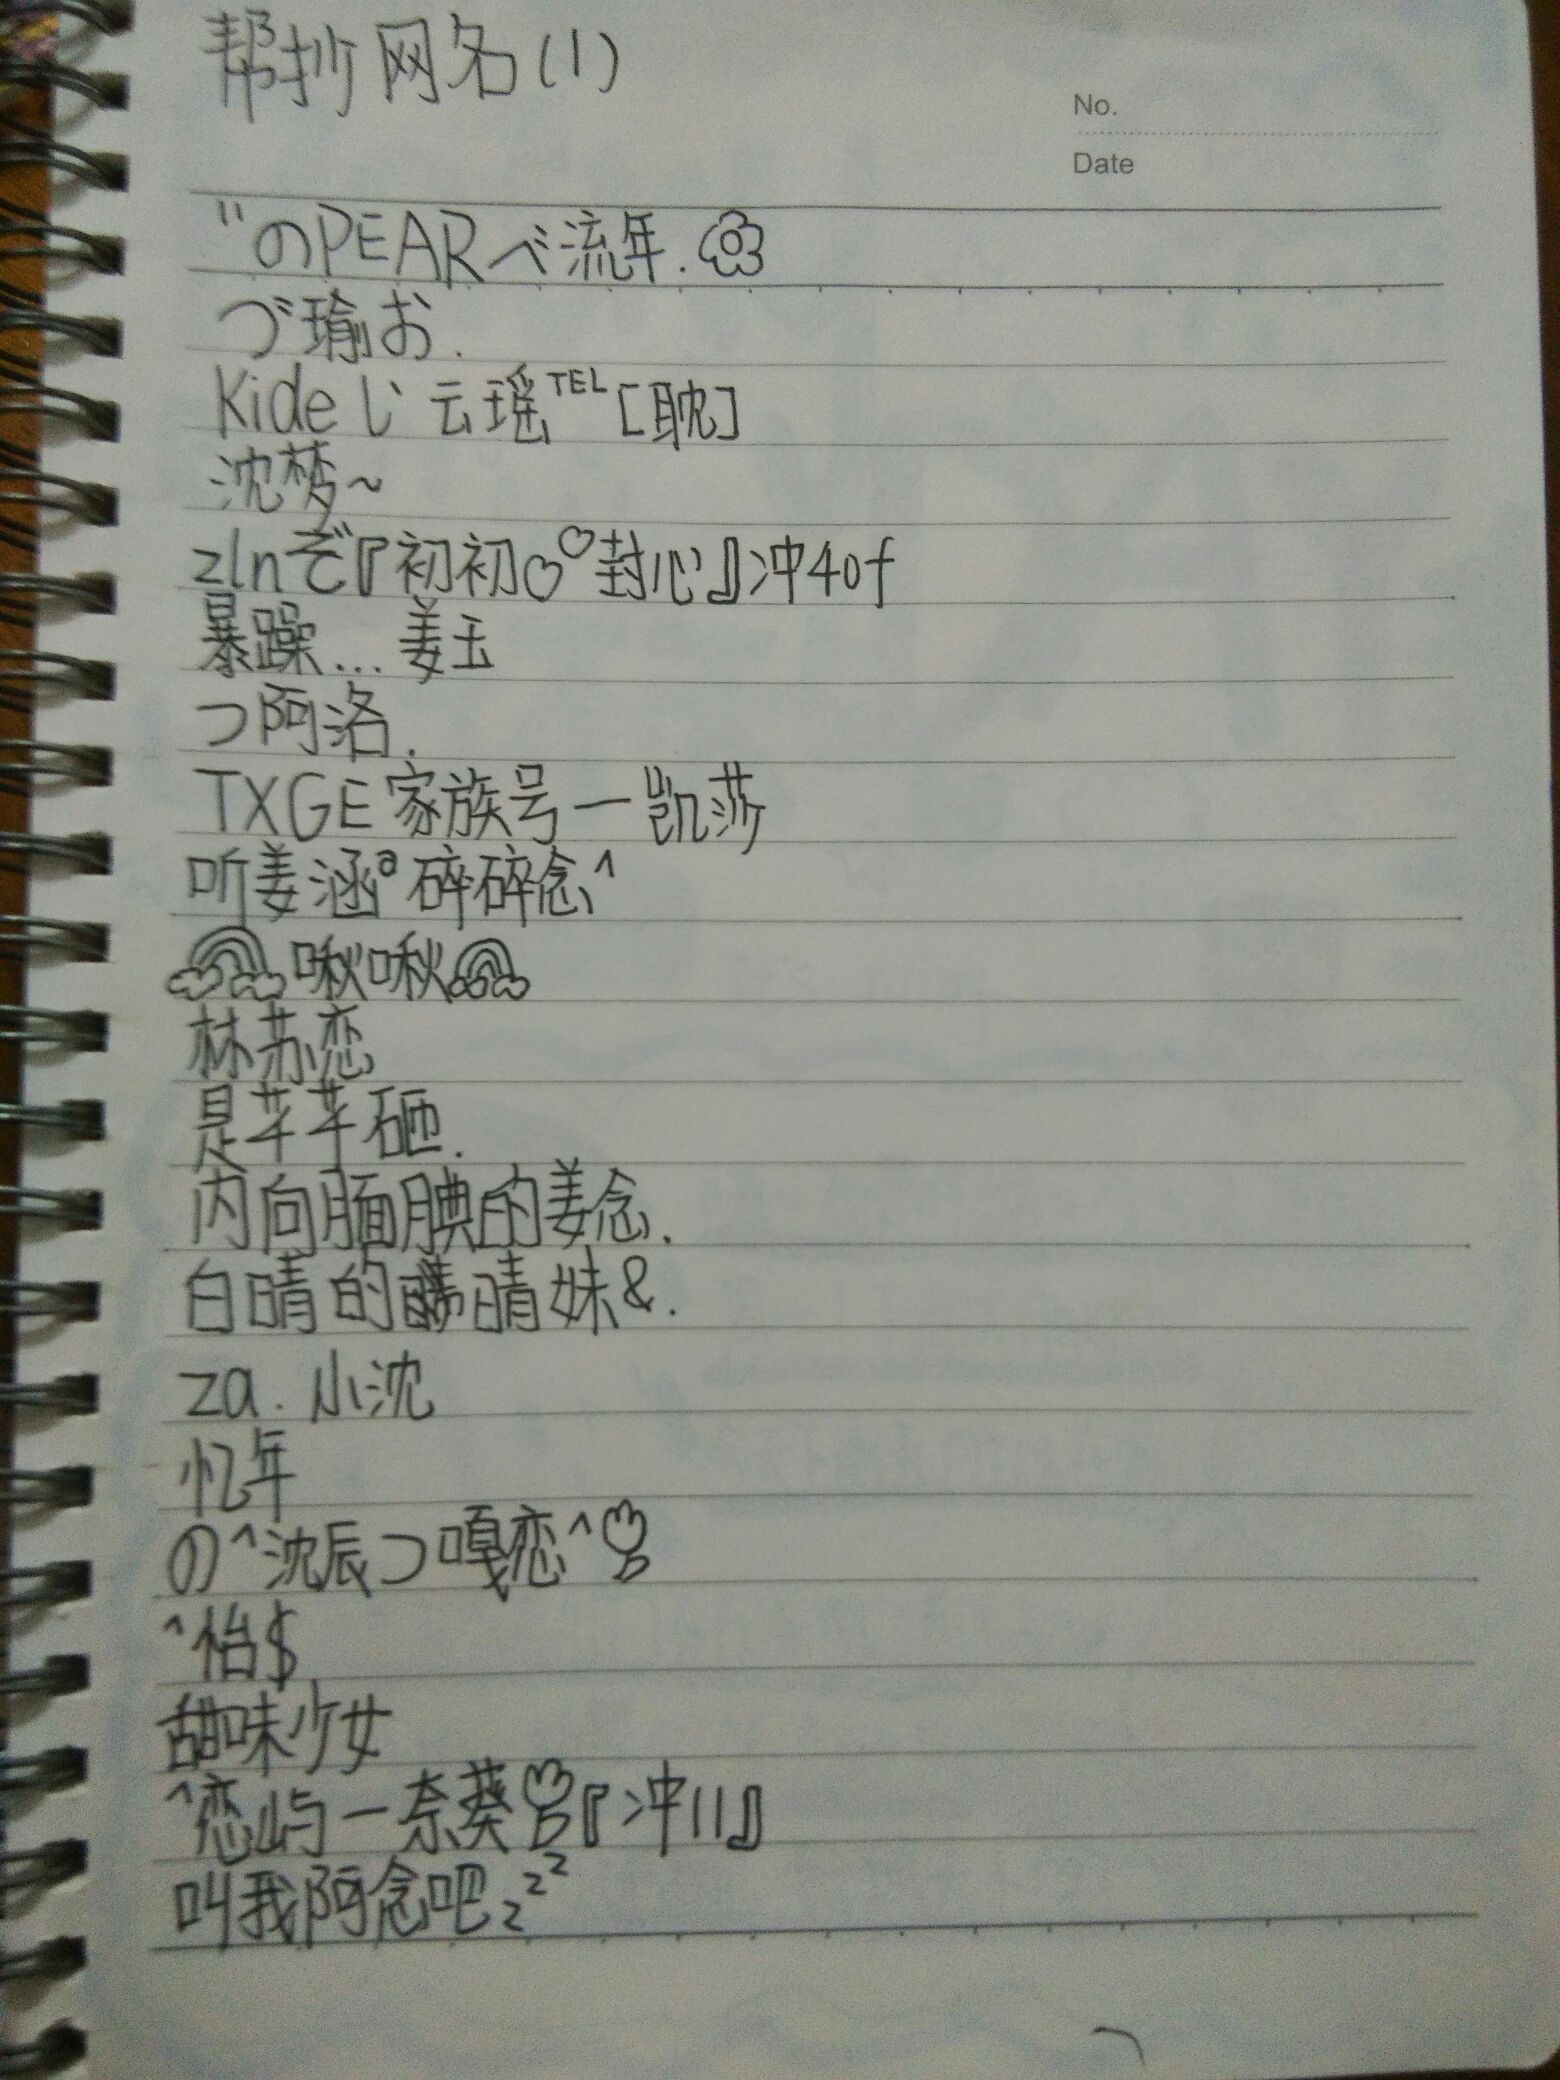 帮抄网名(1)
No.
Date
"のPEARべ流年.
づ瑜お.
Kideじ云瑶TEL[耽]
沈梦~
zlnぞ『初初♡♡封心』冲40f
暴躁...姜玉
つ阿洛.
TXGE家族号一凯莎
听姜涵@碎碎念^
啾啾
林苏恋
是芊芊硒.
内向腼腆的姜念.
白晴的晴妹&.
za.小沈
忆年
の^沈辰つ嘎恋^
^怡$
甜味少女
^恋屿一奈葵『冲11』
叫我阿念吧zzz